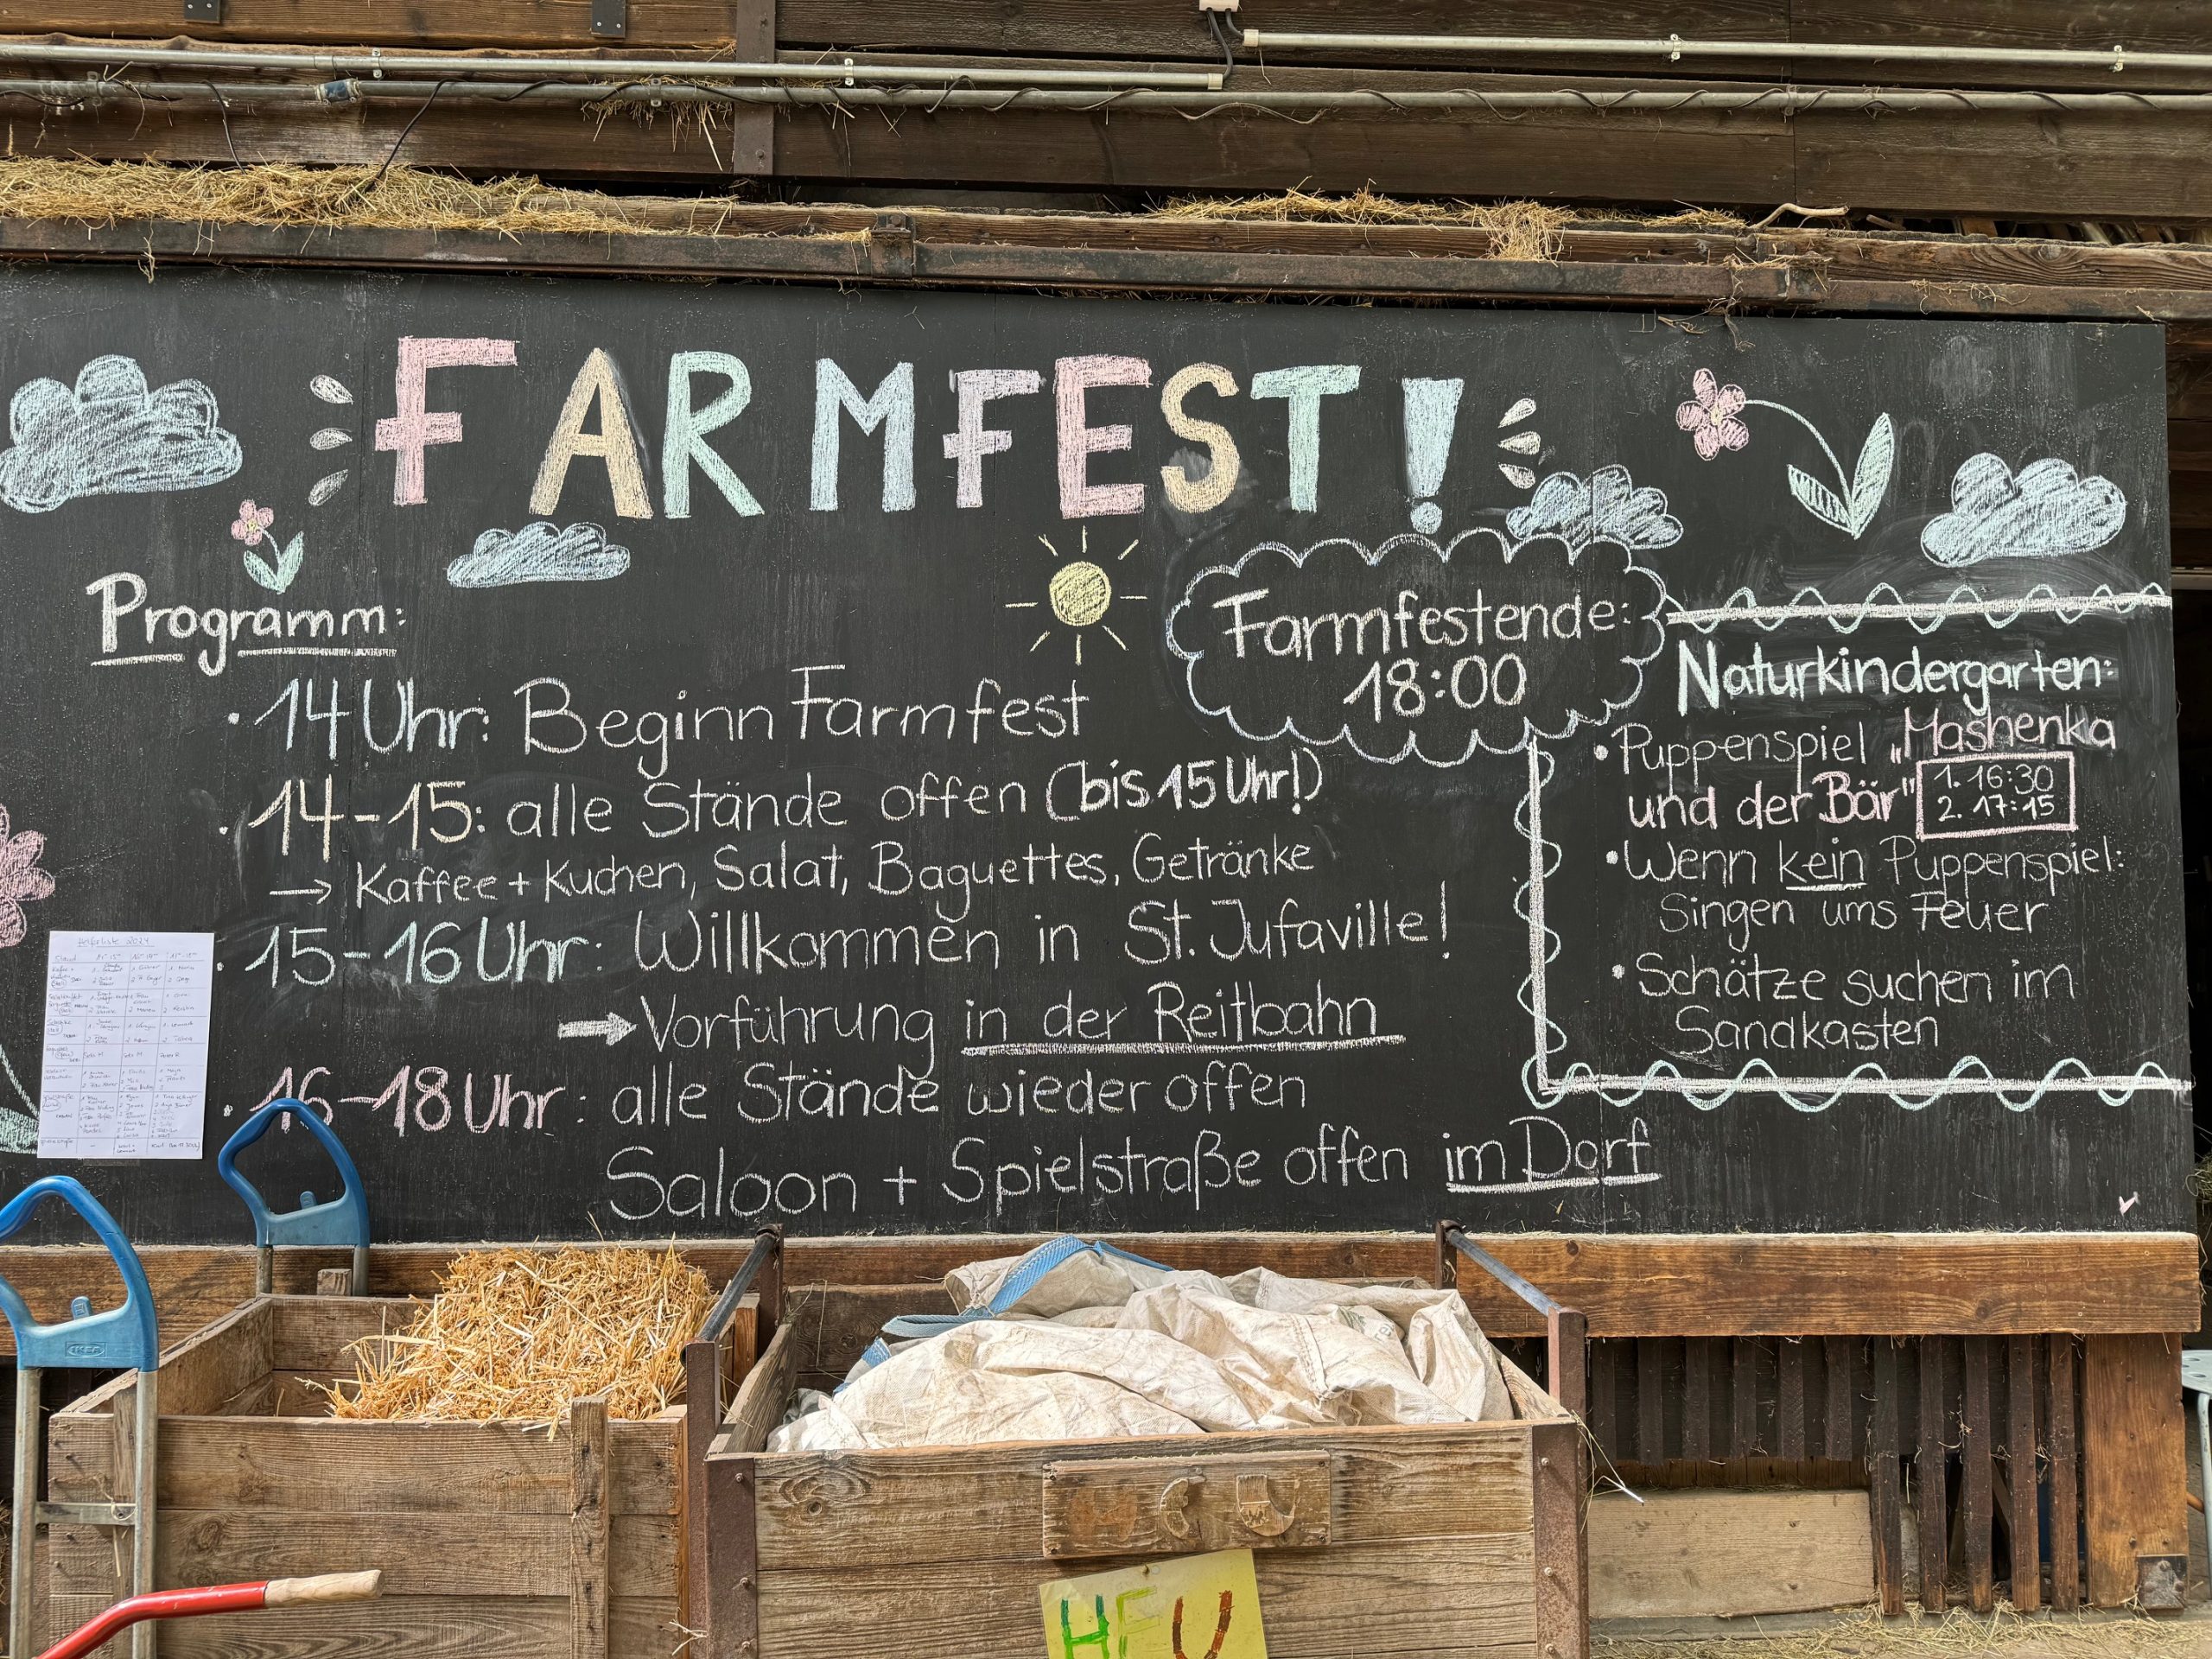 FARMFEST!
Programm:
· 14 Uhr: Beginn Farmfest
· 14-15: alle Stände offen (bis 15 Uhr!)
→ Kaffee + Kuchen, Salat, Baguettes, Getränke
· 15-16 Uhr: Willkommen in St. Jufaville!
→ Vorführung in der Reitbahn
· 16-18 Uhr: alle Stände wieder offen
Saloon + Spielstraße offen im Dorf
Farmfestende:
18:00
Naturkindergarten:
• Puppenspiel „Mashenka
und der Bär"
1. 16:30
2. 17:15
• Wenn kein Puppenspiel:
Singen ums Feuer
• Schätze suchen im
Sandkasten
Helferliste 2024
Stand
IKEA
HEU
HEU